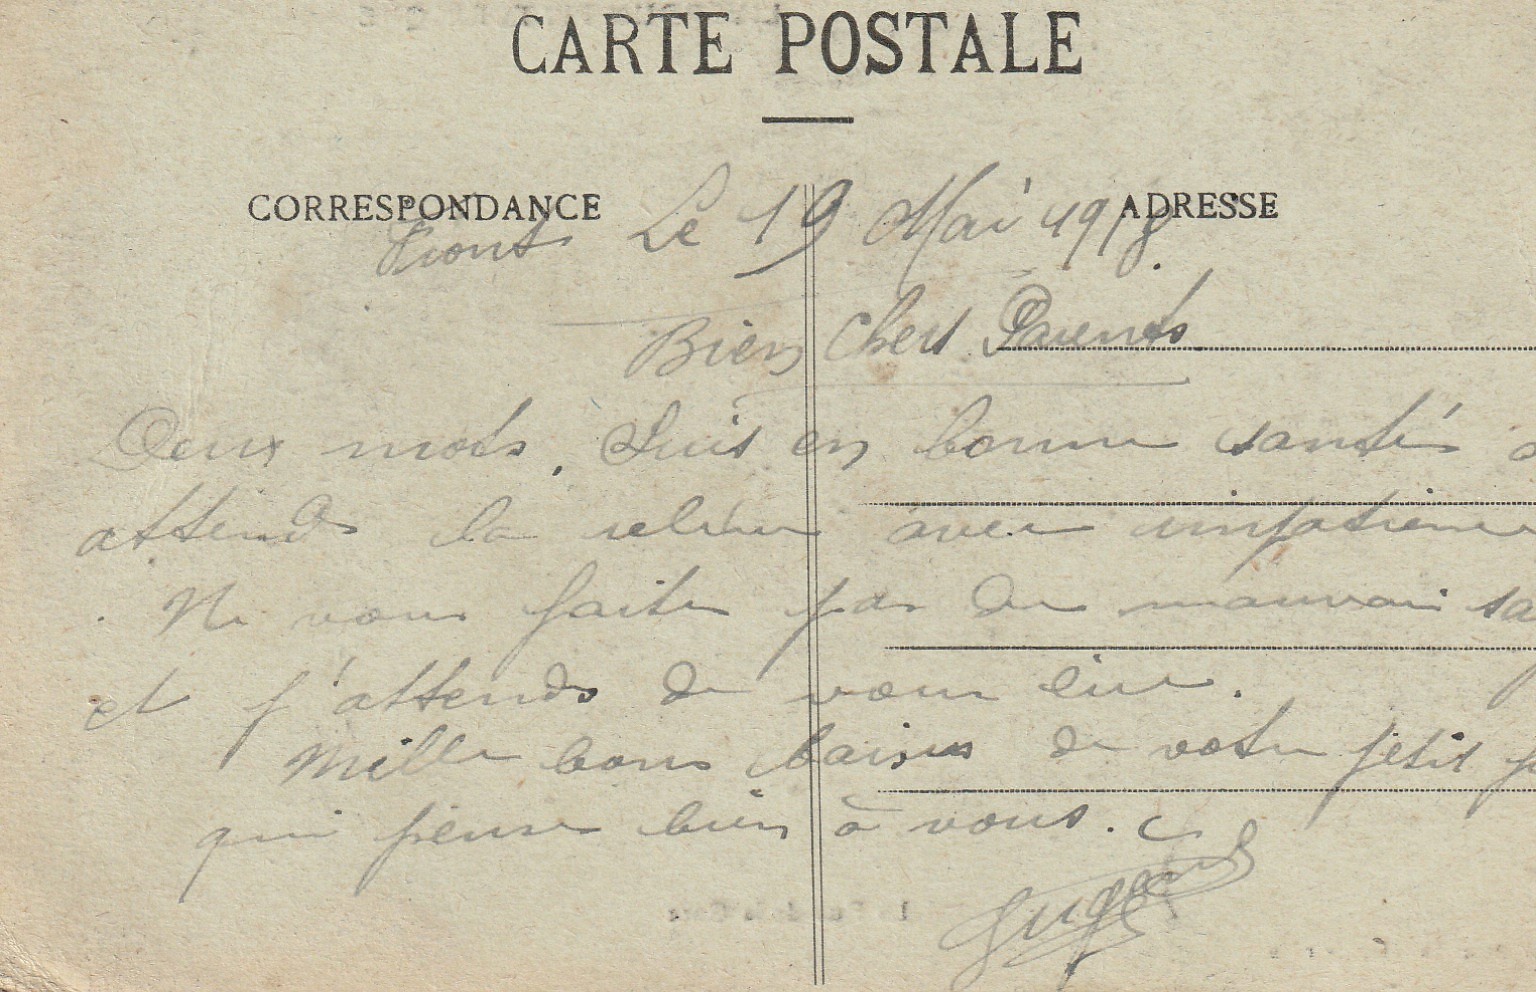 CARTE POSTALE
CORRESPONDANCE ADRESSE
Front Le 19 Mai 1918.
Bien Chers Parents
Deux mots. Suis en bonne santé
attends la relève avec impatience
. Ne vous faites pas de mauvais sa
et j'attends de vous lire.
Mille bons baisers de votre petit
qui pense bien à vous.